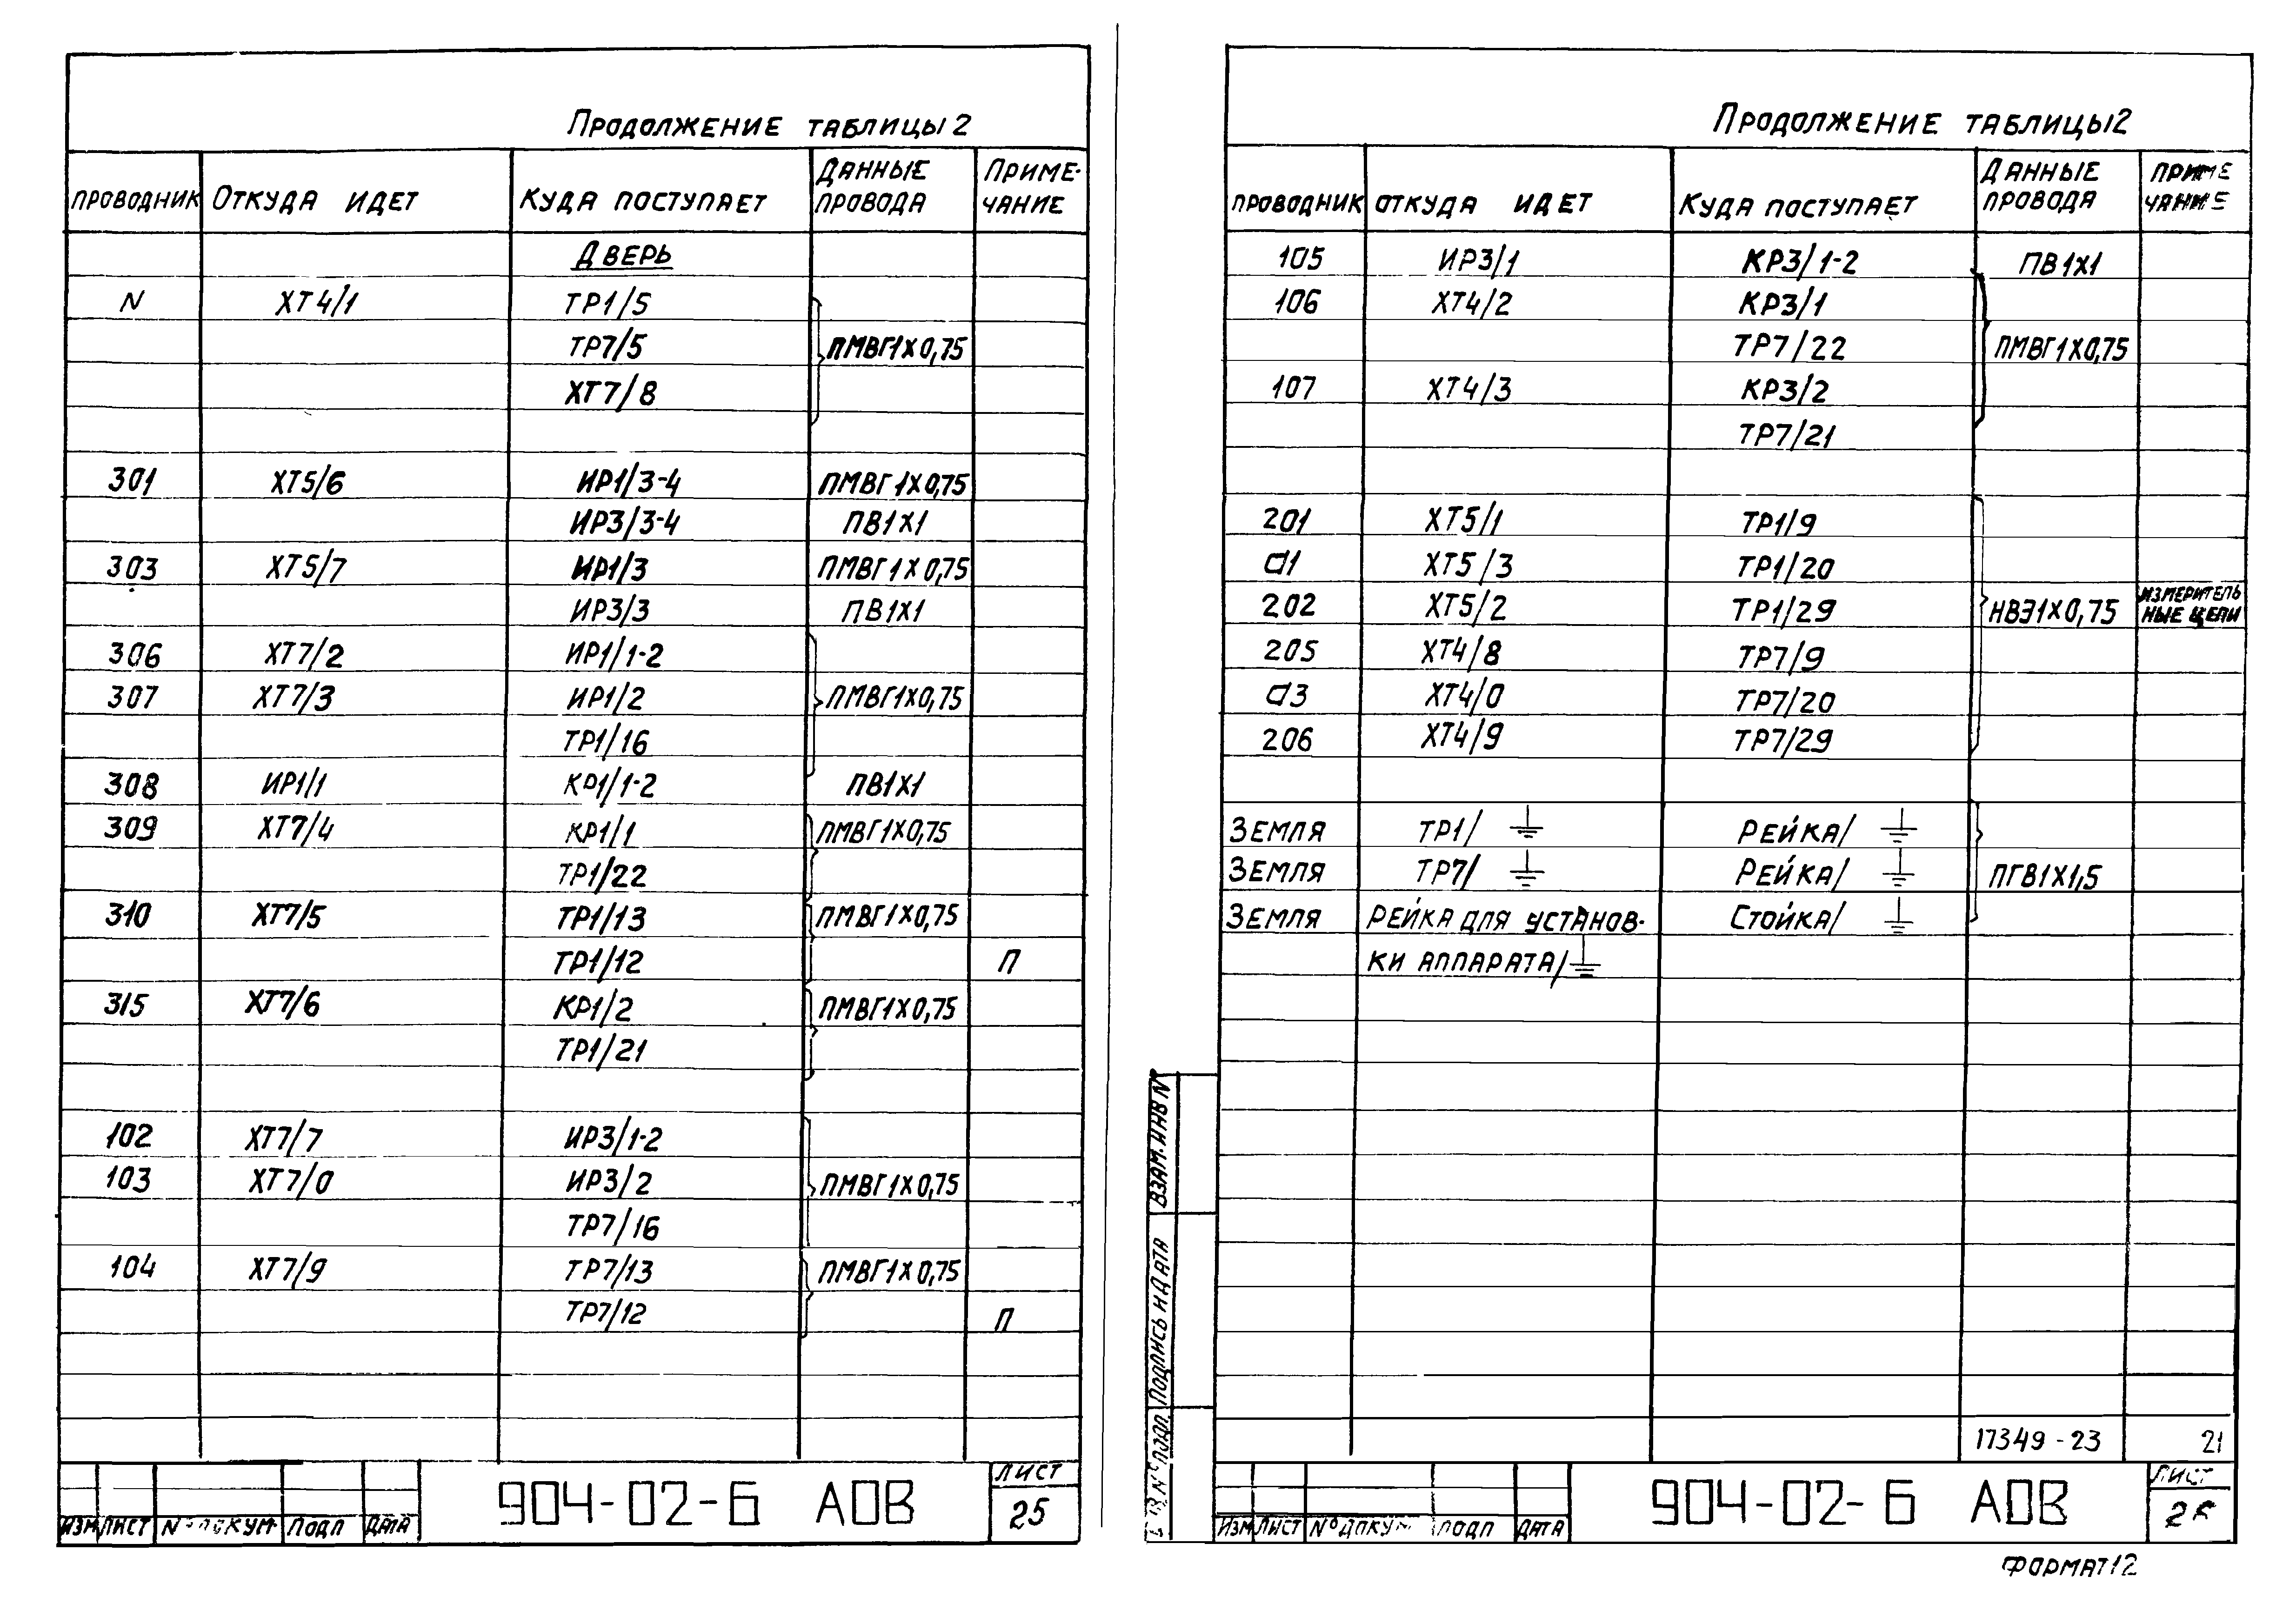 Продолжение таблицы 2
Проводник Откуда идет Куда поступает Данные провода Примечание
Дверь
N ХТ4/1 ТР1/5
ТР7/5 ПМВГ1Х0,75
ХТ7/8
301 ХТ5/6 ИР1/3-4 ПМВГ1Х0,75
ИР3/3-4 ПВ1Х1
303 ХТ5/7 ИР1/3 ПМВГ1Х0,75
ИР3/3 ПВ1Х1
306 ХТ7/2 ИР1/1-2
307 ХТ7/3 ИР1/2 ПМВГ1Х0,75
ТР1/16
308 ИР1/1 КР1/1-2 ПВ1Х1
309 ХТ7/4 КР1/1 ПМВГ1Х0,75
ТР1/22
310 ХТ7/5 ТР1/13 ПМВГ1Х0,75
ТР1/12 П
315 ХТ7/6 КР1/2 ПМВГ1Х0,75
ТР1/21
102 ХТ7/7 ИР3/1-2
103 ХТ7/0 ИР3/2 ПМВГ1Х0,75
ТР7/16
104 ХТ7/9 ТР7/13 ПМВГ1Х0,75
ТР7/12 П
Изм Лист № докум. Подп Дата
904-02-6 АОВ
Лист
25
Продолжение таблицы 2
Проводник Откуда идет Куда поступает Данные провода Примечание
105 ИР3/1 КР3/1-2 ПВ1Х1
106 ХТ4/2 КР3/1
ТР7/22 ПМВГ1Х0,75
107 ХТ4/3 КР3/2
ТР7/21
201 ХТ5/1 ТР1/9
а1 ХТ5/3 ТР1/20
202 ХТ5/2 ТР1/29 НВЭ1Х0,75 Измерительные цепи
205 ХТ4/8 ТР7/9
а3 ХТ4/0 ТР7/20
206 ХТ4/9 ТР7/29
Земля ТР1/⏚ Рейка/⏚
Земля ТР7/⏚ Рейка/⏚ ПГВ1Х1,5
Земля Рейка для установ- Стойка/⏚
ки аппарата/⏚
Взам. инв №
Подпись и дата
№ подл.
17349-23 21
Изм Лист № докум Подп Дата
904-02-6 АОВ
Лист
26
Формат 12